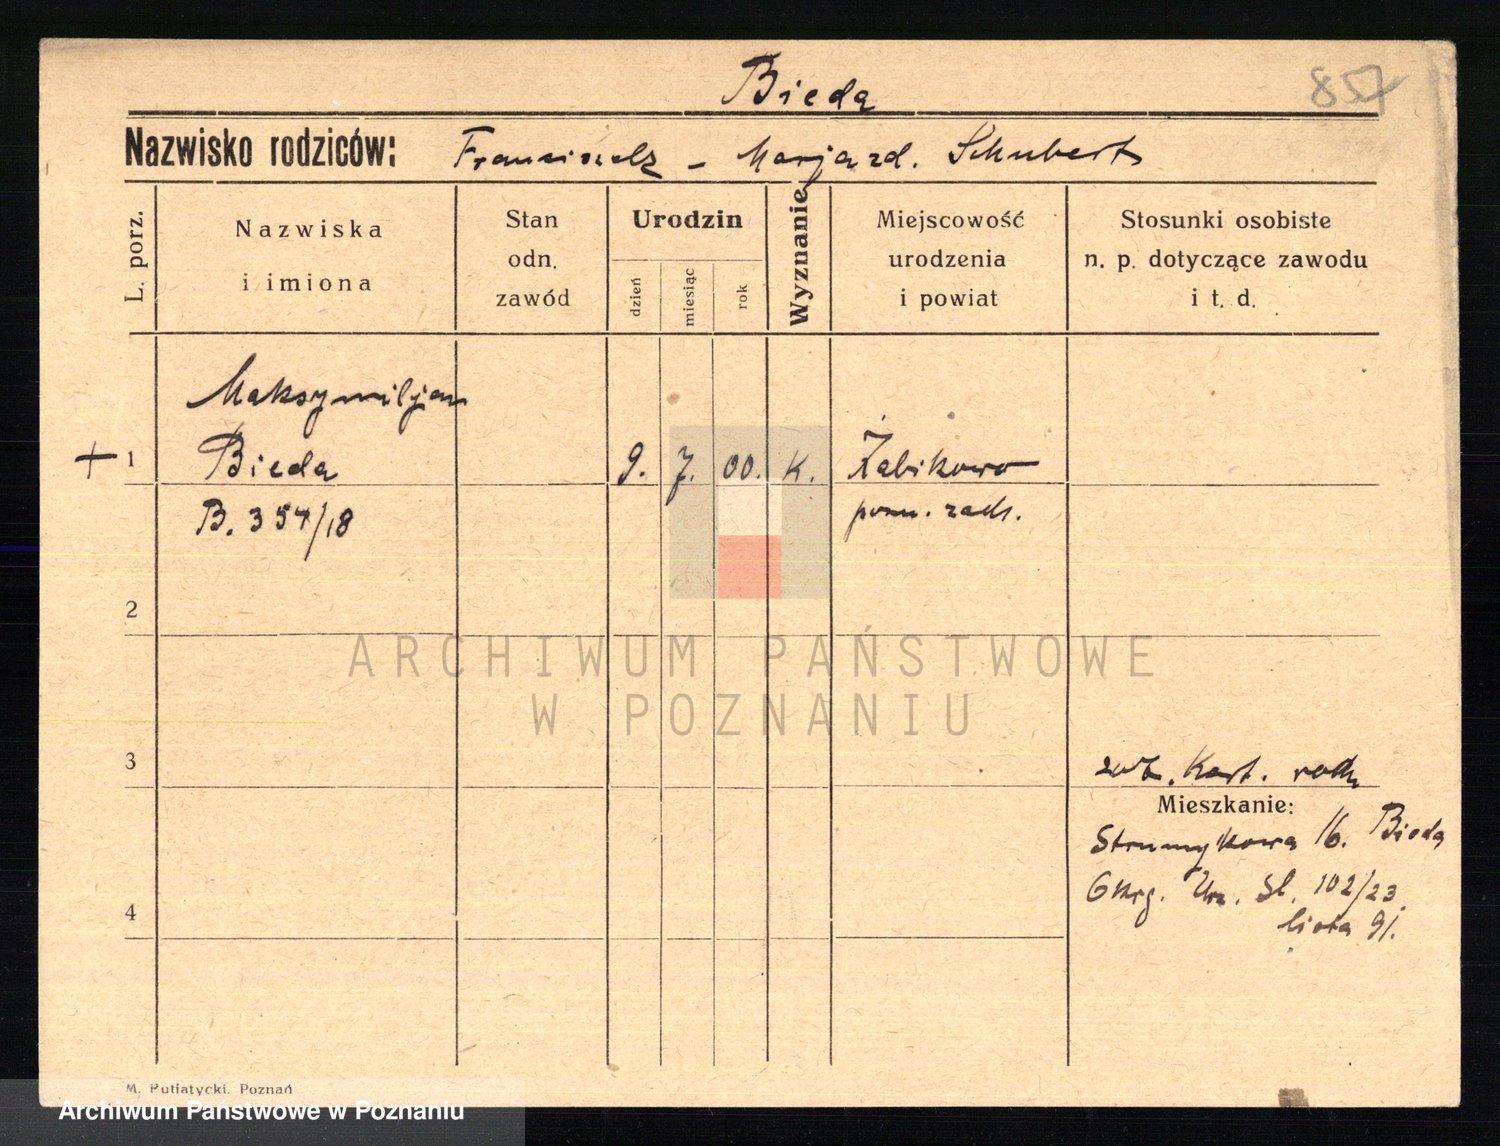 Bieda
857
Nazwisko rodziców: Franciszek - Marja zd. Schubert
L. porz.
Nazwiska
i imiona
Stan
odn.
zawód
Urodzin
dzień
miesiąc
rok
Wyznanie
Miejscowość
urodzenia
i powiat
Stosunki osobiste
n. p. dotyczące zawodu
i t. d.
Maksymiljan
+ 1 Bieda 9. 7. 00. K. Żabikowo
B. 354/18 pozn. zach.
2
ARCHIWUM PAŃSTWOWE
W POZNANIU
3
zob. Kart. rodz.
Mieszkanie:
Strumykowa 16. Bieda
Okrg. Urz. St. 102/23.
lista 91.
4
M. Putiatycki. Poznań
Archiwum Państwowe w Poznaniu